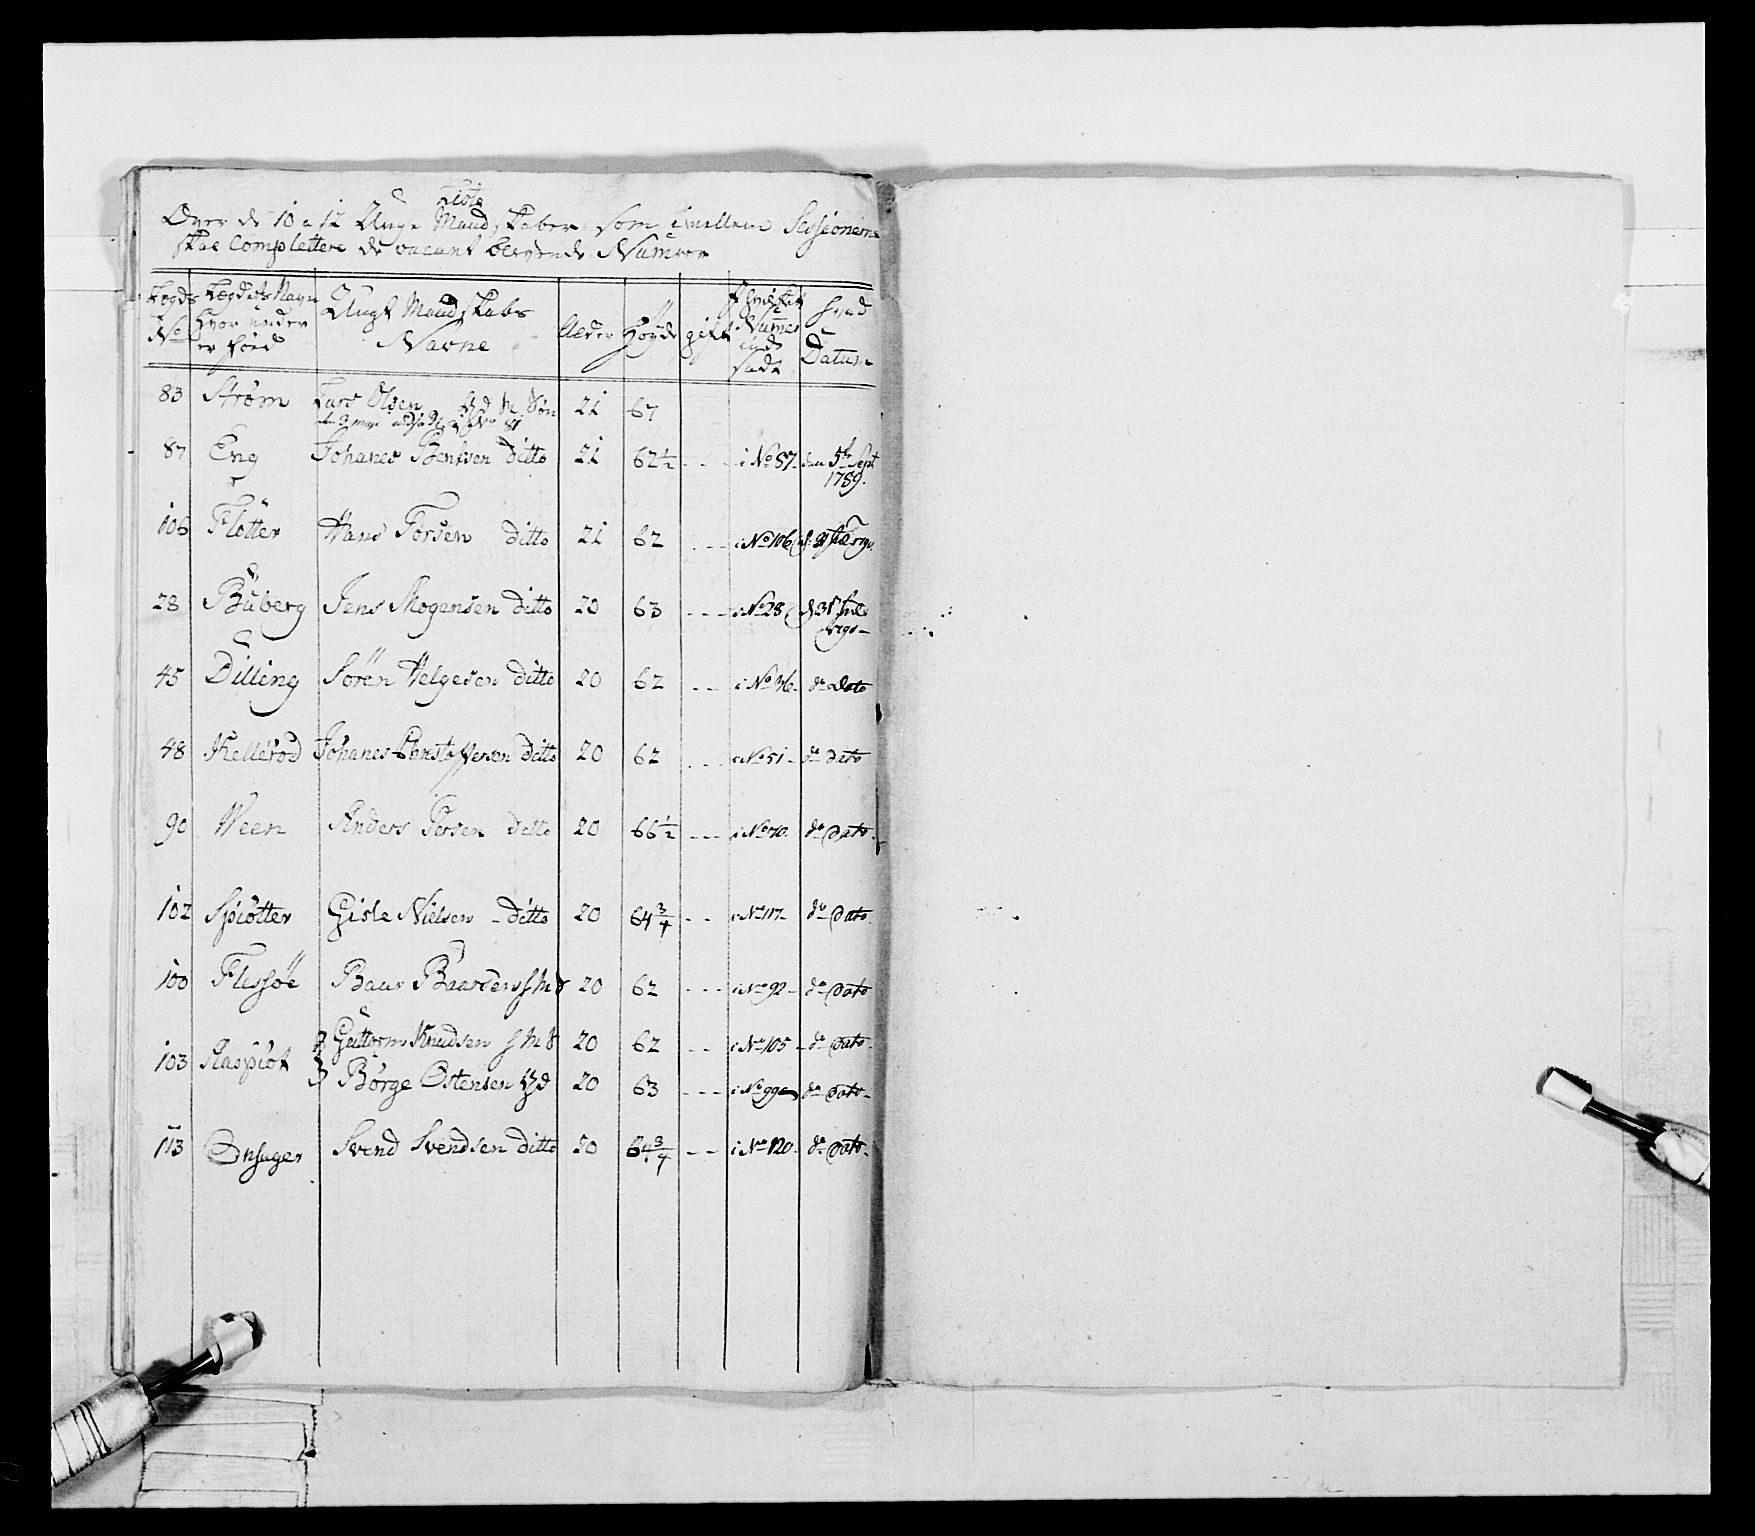 Liste
Over de 10 a 12 Unge Mandskaber som imellem Sessionerne
skal Complettere de vacant blevende Numere
Lægds No | Lægdets Navn Hvor under er föed | Ungt Mandskabs Navne | Alder | Høyde | gift | Numer inds sadt | hvad Datum
83 Strøm Lars Olsen Søn 21 67
87 Eng Johanes Bentsen ditto 21 62½ - - - i No 87 - den 5te Sept 1789.
106 Flötter Hans Torsen ditto 21 62 - - - i No 106
28 Buberg Jens Mogensen ditto 20 63 - - - i No 28
45 Dilling Søren Helgesen ditto 20 62 - - i No 46 - do Dato
48 Kellerød Johanes Christophersen ditto 20 62 - - - i No 51 - do dato
90 Ween Anders Persen ditto 20 66½ - - - i No 70. do Dato.
102 Spiötter Gisle Nielsen - ditto 20 64¾ - - i No 117 - do Dato.
100 Flesjöe Baar Baardsen 20 62 - - - i No 92 - do Dato
103 Raspiöt Guttorm Knudsen 20 62 - - i No 105 - do Dato.
Børge Ostensen 20 63 - - - i No 99 do Dato -
113 Onsager Svend Svendsen ditto 20 64¾ - - i No 120. do Dato -